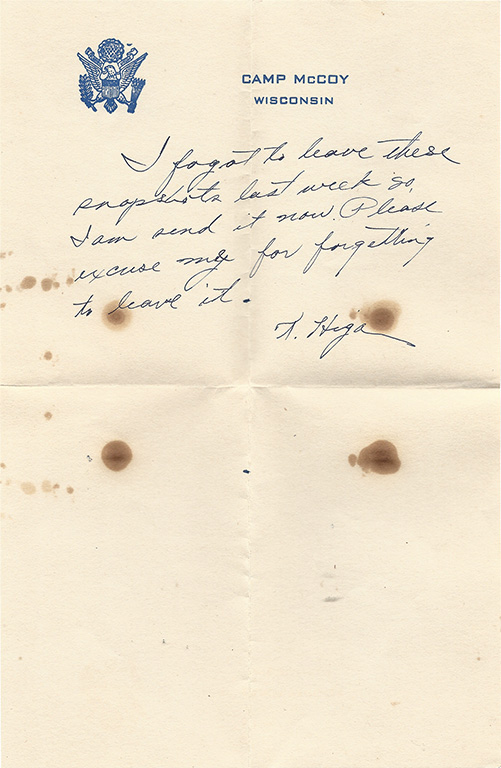 CAMP McCOY
WISCONSIN
I forgot to leave these
snapshots last week so,
I am send it now. Please
excuse me for forgetting
to leave it.
T. Higa